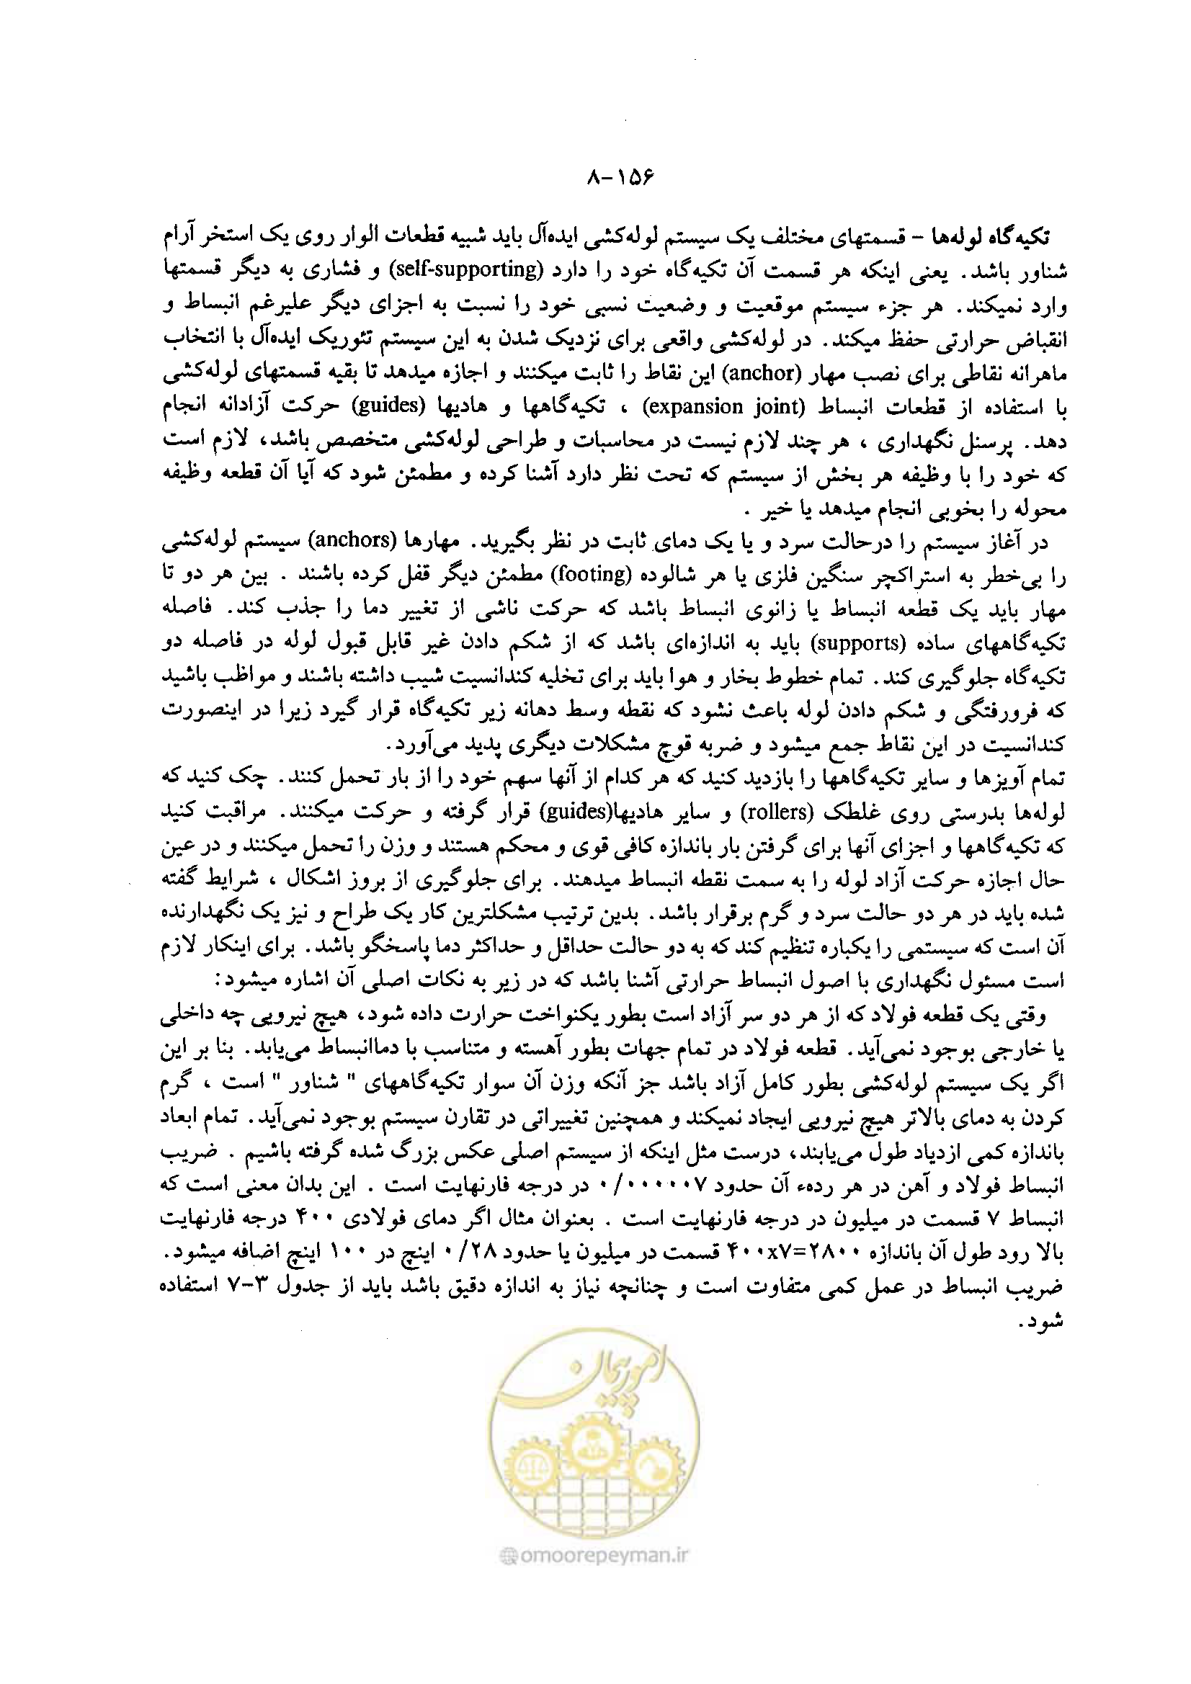 ۸-۱۵۶
تکیه‌گاه لوله‌ها - قسمتهای مختلف یک سیستم لوله‌کشی ایده‌آل باید شبیه قطعات الوار روی یک استخر آرام
شناور باشد. یعنی اینکه هر قسمت آن تکیه‌گاه خود را دارد (self-supporting) و فشاری به دیگر قسمتها
وارد نمیکند. هر جزء سیستم موقعیت و وضعیت نسبی خود را نسبت به اجزای دیگر علیرغم انبساط و
انقباض حرارتی حفظ میکند. در لوله‌کشی واقعی برای نزدیک شدن به این سیستم تئوریک ایده‌آل با انتخاب
ماهرانه نقاطی برای نصب مهار (anchor) این نقاط را ثابت میکنند و اجازه میدهد تا بقیه قسمتهای لوله‌کشی
با استفاده از قطعات انبساط (expansion joint) ، تکیه‌گاهها و هادیها (guides) حرکت آزادانه انجام
دهد. پرسنل نگهداری ، هر چند لازم نیست در محاسبات و طراحی لوله‌کشی متخصص باشد، لازم است
که خود را با وظیفه هر بخش از سیستم که تحت نظر دارد آشنا کرده و مطمئن شود که آیا آن قطعه وظیفه
محوله را بخوبی انجام میدهد یا خیر .
در آغاز سیستم را درحالت سرد و یا یک دمای ثابت در نظر بگیرید. مهارها (anchors) سیستم لوله‌کشی
را بی‌خطر به استراکچر سنگین فلزی یا هر شالوده (footing) مطمئن دیگر قفل کرده باشند . بین هر دو تا
مهار باید یک قطعه انبساط یا زانوی انبساط باشد که حرکت ناشی از تغییر دما را جذب کند. فاصله
تکیه‌گاههای ساده (supports) باید به اندازه‌ای باشد که از شکم دادن غیر قابل قبول لوله در فاصله دو
تکیه‌گاه جلوگیری کند. تمام خطوط بخار و هوا باید برای تخلیه کندانسیت شیب داشته باشند و مواظب باشید
که فرورفتگی و شکم دادن لوله باعث نشود که نقطه وسط دهانه زیر تکیه‌گاه قرار گیرد زیرا در اینصورت
کندانسیت در این نقاط جمع میشود و ضربه قوچ مشکلات دیگری پدید می‌آورد.
تمام آویزها و سایر تکیه‌گاهها را بازدید کنید که هر کدام از آنها سهم خود را از بار تحمل کنند. چک کنید که
لوله‌ها بدرستی روی غلطک (rollers) و سایر هادیها(guides) قرار گرفته و حرکت میکنند. مراقبت کنید
که تکیه‌گاهها و اجزای آنها برای گرفتن بار باندازه کافی قوی و محکم هستند و وزن را تحمل میکنند و در عین
حال اجازه حرکت آزاد لوله را به سمت نقطه انبساط میدهند. برای جلوگیری از بروز اشکال ، شرایط گفته
شده باید در هر دو حالت سرد و گرم برقرار باشد. بدین ترتیب مشکلترین کار یک طراح و نیز یک نگهدارنده
آن است که سیستمی را یکباره تنظیم کند که به دو حالت حداقل و حداکثر دما پاسخگو باشد. برای اینکار لازم
است مسئول نگهداری با اصول انبساط حرارتی آشنا باشد که در زیر به نکات اصلی آن اشاره میشود:
وقتی یک قطعه فولاد که از هر دو سر آزاد است بطور یکنواخت حرارت داده شود، هیچ نیرویی چه داخلی
یا خارجی بوجود نمی‌آید. قطعه فولاد در تمام جهات بطور آهسته و متناسب با دماانبساط می‌یابد. بنا بر این
اگر یک سیستم لوله‌کشی بطور کامل آزاد باشد جز آنکه وزن آن سوار تکیه‌گاههای " شناور " است ، گرم
کردن به دمای بالاتر هیچ نیرویی ایجاد نمیکند و همچنین تغییراتی در تقارن سیستم بوجود نمی‌آید. تمام ابعاد
باندازه کمی ازدیاد طول می‌یابند، درست مثل اینکه از سیستم اصلی عکس بزرگ شده گرفته باشیم . ضریب
انبساط فولاد و آهن در هر رده‌ء آن حدود ۰/۰۰۰۰۰۷ در درجه فارنهایت است . این بدان معنی است که
انبساط ۷ قسمت در میلیون در درجه فارنهایت است . بعنوان مثال اگر دمای فولادی ۴۰۰ درجه فارنهایت
بالا رود طول آن باندازه ۴۰۰x۷=۲۸۰۰ قسمت در میلیون یا حدود ۰/۲۸ اینچ در ۱۰۰ اینچ اضافه میشود.
ضریب انبساط در عمل کمی متفاوت است و چنانچه نیاز به اندازه دقیق باشد باید از جدول ۳-۷ استفاده
شود.
امور پیمان
@omoorepeyman.ir